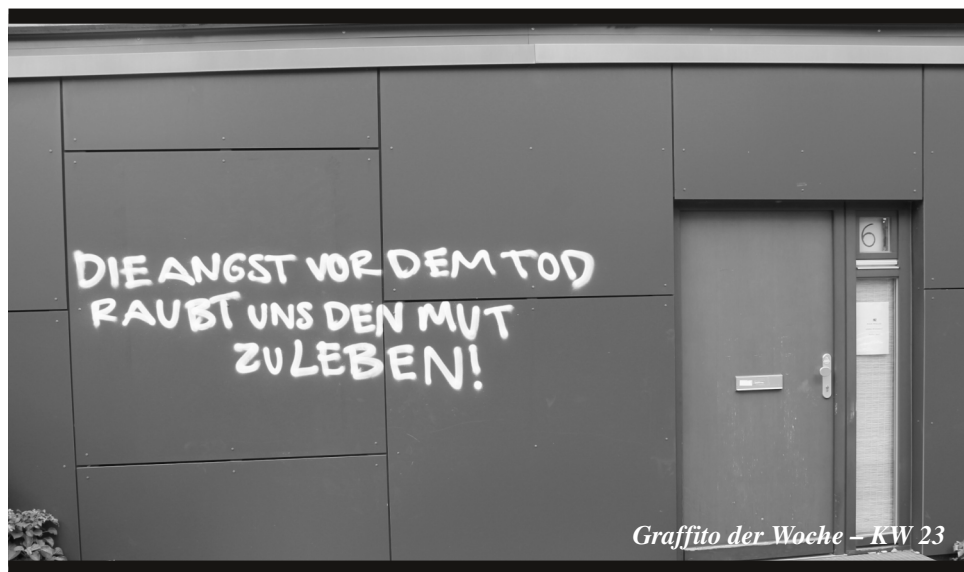 DIE ANGST VOR DEM TOD
RAUBT UNS DEN MUT
ZU LEBEN!
6
Graffito der Woche – KW 23